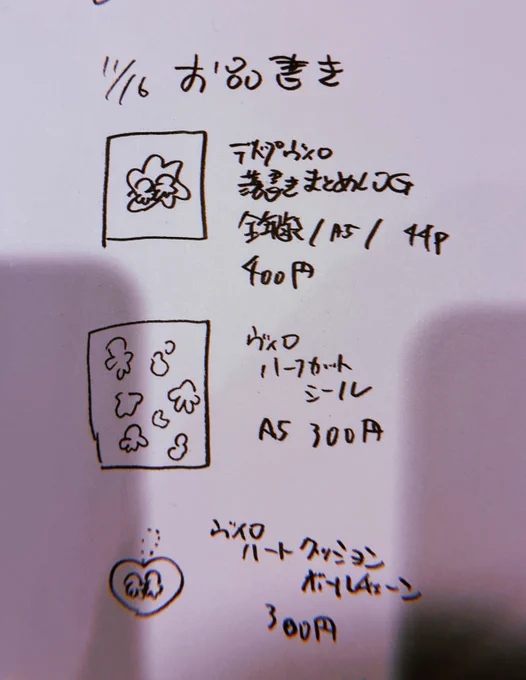 11/16 お品書き
デスプヴィロ
落書きまとめLOG
全年齢/A5/ 44p
400円
ヴィロ
ハーフカット
シール
A5 300円
ヴィロ
ハートクッション
ボールチェーン
300円